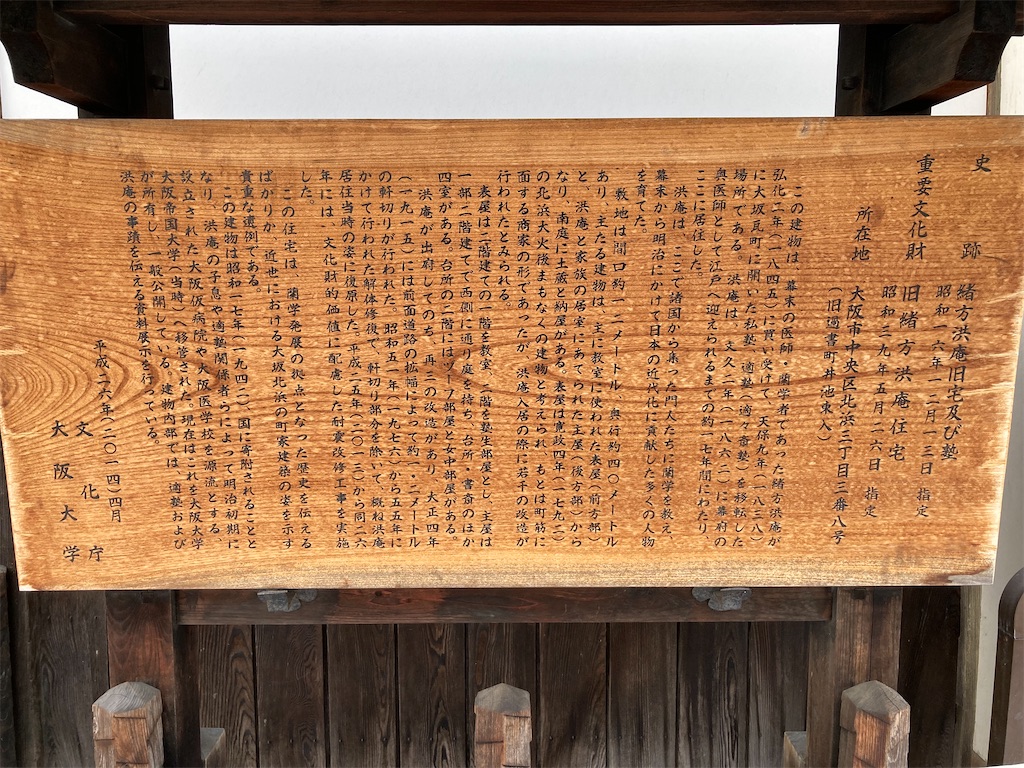 史跡　緒方洪庵旧宅及び塾
昭和一六年一二月一三日　指定
重要文化財　旧緒方洪庵住宅
昭和三九年五月二六日　指定
所在地　大阪市中央区北浜三丁目三番八号
（旧過書町井池東入）
この建物は、幕末の医師・蘭学者であった緒方洪庵が
弘化二年（一八四五）に買い受けて、天保九年（一八三八）
に大坂瓦町に開いた私塾、適塾（適々斎塾）を移転した
場所である。洪庵は、文久二年（一八六二）に幕府の
奥医師として江戸へ迎えられるまでの約一七年間にわたり、
ここに居住した。
洪庵は、ここで諸国から集った門人たちに蘭学を教え、
幕末から明治にかけて日本の近代化に貢献した多くの人物
を育てた。
敷地は間口約一二メートル、奥行約四〇メートル
あり、主たる建物は、主に教室に使われた表屋（前方部）
と、洪庵と家族の居室にあてられた主屋（後方部）から
なり、南庭に土蔵と納屋がある。表屋は寛政四年（一七九二）
の北浜大火後まもなくの建物と考えられ、もとは町筋に
面する商家の形であったが、洪庵入居の際に若干の改造が
行われたとみられる。
表屋は二階建ての一階を教室、二階を塾生部屋とし、主屋は
一部二階建てで西側に通り庭を持ち、台所・書斎のほか
四室がある。台所の二階にはヅーフ部屋と女中部屋がある。
洪庵が出府してのち、再三の改造があり、大正四年
（一九一五）には前面道路の拡幅によって約一・二メートル
の軒切りが行われた。昭和五一年（一九七六）から五五年に
かけて行われた解体修復で、軒切り部分を除いて、概ね洪庵
居住当時の姿に復原した。平成二五年（二〇一三）から同二六
年には、文化財的価値に配慮した耐震改修工事を実施
した。
この住宅は、蘭学発展の拠点となった歴史を伝える
ばかりか、近世における大坂北浜の町家建築の姿を示す
貴重な遺例である。
この建物は昭和一七年（一九四二）、国に寄附されることと
なり、洪庵の子息や適塾関係者らによって明治初期に
設立された大阪仮病院や大阪医学校を源流とする、
大阪帝国大学（当時）へ移管された。現在はこれを大阪大学
が所有し、一般公開している。建物内部では、適塾および
洪庵の事蹟を伝える資料展示を行っている。
平成二六年（二〇一四）四月
文化庁
大阪大学